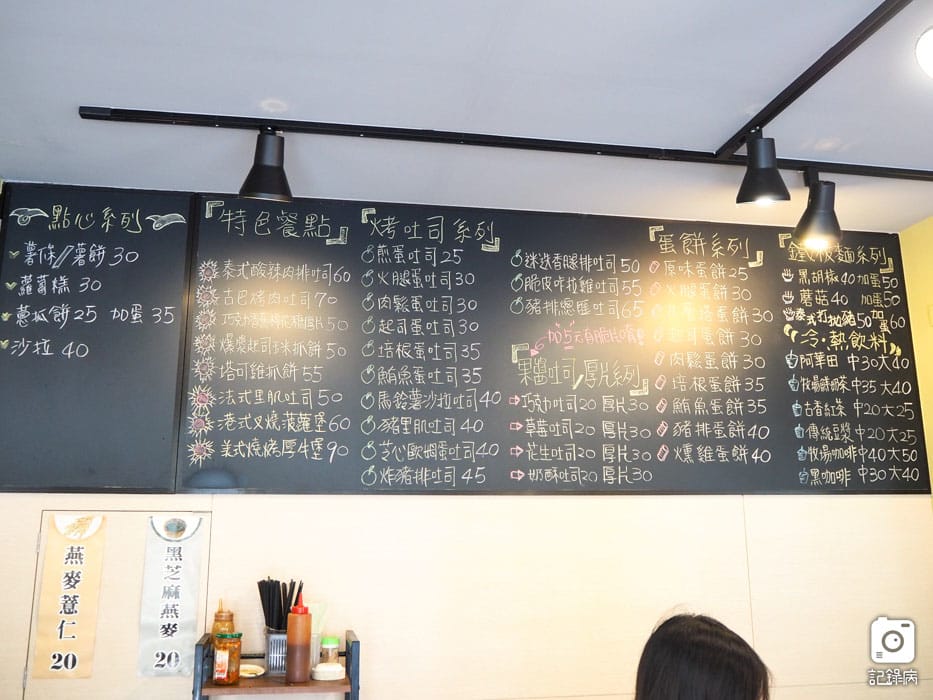 點心系列
薯條//薯餅 30
蘿蔔糕 30
蔥抓餅 25 加蛋 35
沙拉 40
特色餐點
泰式酸辣肉排吐司 60
古巴烤肉吐司 70
50
爆漿起司玉米抓餅 50
塔可雞抓餅 55
法式里肌吐司 50
港式叉燒菠蘿堡 60
美式燒烤厚牛堡 90
烤吐司系列
煎蛋吐司 25
火腿蛋吐司 30
肉鬆蛋吐司 30
起司蛋吐司 30
培根蛋吐司 35
鮪魚蛋吐司 35
馬鈴薯沙拉吐司 40
豬里肌吐司 40
芝心歐姆蛋吐司 40
炸豬排吐司 45
迷迭香腿排吐司 50
脆皮咔拉雞吐司 55
豬排總匯吐司 65
加5元有脆片唷!!
果醬吐司/厚片系列
巧克力吐司 20 厚片 30
草莓吐司 20 厚片 30
花生吐司 20 厚片 30
奶酥吐司 20 厚片 30
蛋餅系列
原味蛋餅 25
火腿蛋餅 30
蛋餅 30
起司蛋餅 30
肉鬆蛋餅 30
培根蛋餅 35
鮪魚蛋餅 35
豬排蛋餅 40
燻雞蛋餅 40
鐵板麵系列
黑胡椒 40 加蛋 50
蘑菇 40 加蛋 50
泰式打拋豬 50 加蛋 60
冷·熱飲料
阿華田 中30 大40
牧場鮮奶茶 中35 大40
古香紅茶 中20 大25
傳統豆漿 中20 大25
牧場咖啡 中40 大50
黑咖啡 中30 大40
燕麥薏仁 20
黑芝麻燕麥 20
記錄病